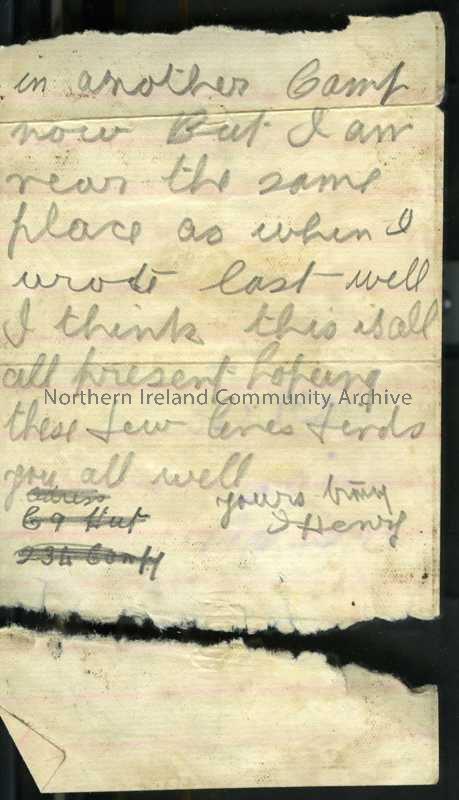 in another Camp
now But I am
near the same
place as when I
wrote last well
I think this is all
all present hoping
Northern Ireland Community Archive
these few lines finds
you all well
adress
C9 Hut
234 Compy
yours
J Henry